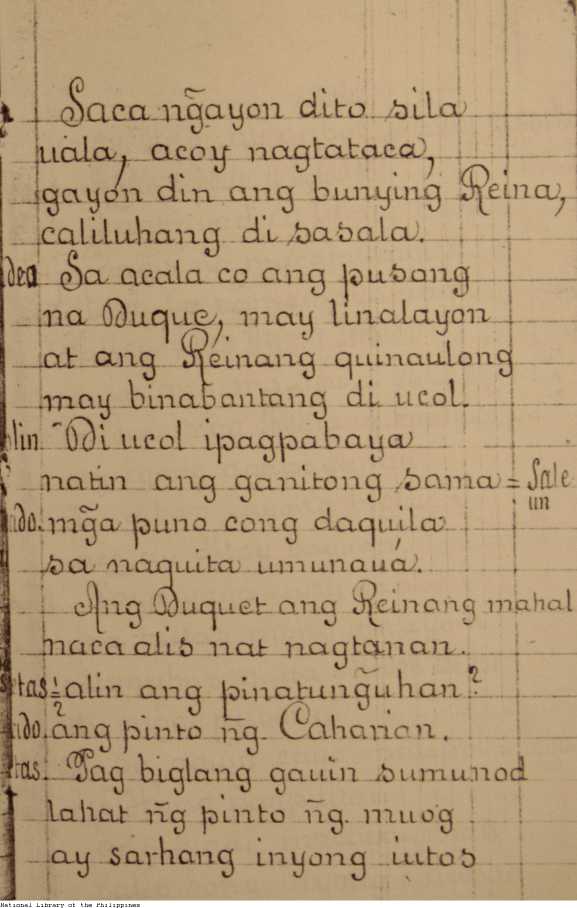 Saca ng̃ayon dito sila
uala, acoy nagtataca,
gayon din ang bunying Reina,
caliluhang di sasala.
dea Sa acala co ang pusong
na Duque, may linalayon
at ang Reinang quinaulong
may binabantang di ucol.
lin. Di ucol ipagpabaya
natin ang ganitong sama = Sale un
ido. mg̃a puno cong daquila
sa naquita umunauá.
Ang Duquet ang Reinang mahal
naca alis nat nagtanan.
tas: alin ang pinatung̃uhan?
ido. ang pinto ñg. Caharian.
tas: Pag biglang gauin sumunod
lahat ñg pinto ñg. muog
ay sarhang inyong iutos
National Library of the Philippines